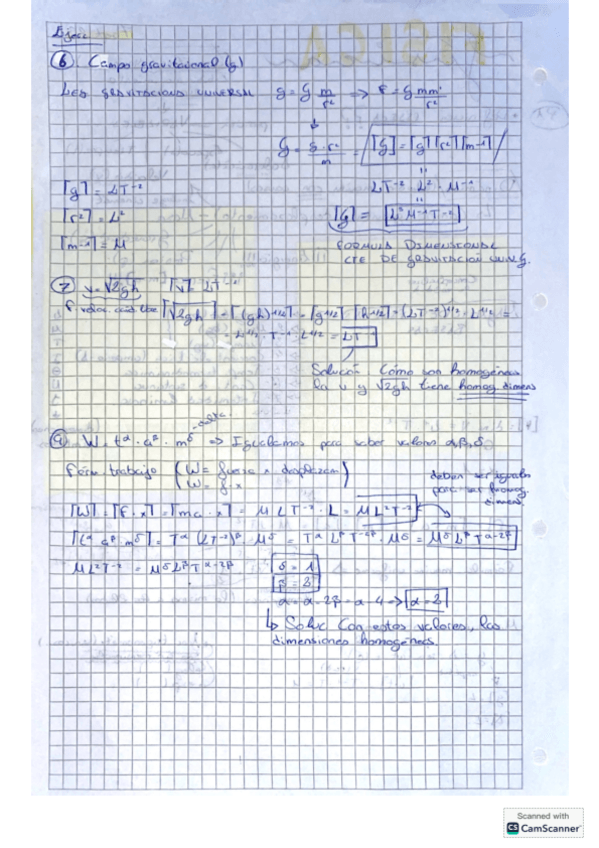 Ejerc
⑥. Campo gravitacional (g)
LEY GRAVITACIONAL UNIVERSAL g = G m/r² => F = G mm'/r²
↓
G = g·r²/m = [G] = [g][r²][m⁻¹]
[g] = LT⁻² LT⁻² · L² · M⁻¹
[r²] = L² [G] = L³M⁻¹T⁻²
[m⁻¹] = M FORMULA DIMENSIONAL
CTE DE GRAVITACIÓN UNIV. G.
⑦ v = √2gh [v] = LT⁻¹
[√2gh] = [(gh)^1/2] = [g^1/2] [h^1/2] = (LT⁻²)^1/2 · L^1/2 =
= L^1/2 · T⁻¹ · L^1/2 = LT⁻¹
Solución. Como son homogéneas
la v y √2gh tiene homog. dimens
⑨ W = t^α · a^β · m^δ => Igualamos para saber valores α, β, δ
Fórm. trabajo (W = fuerza × desplazam) deben ser iguales
W = f·x para ser homog.
dimens.
[W] = [F·x] = [ma·x] = M L T⁻² · L = ML²T⁻²
[t^α a^β m^δ] = T^α (LT⁻²)^β M^δ = T^α L^β T^-2β · M^δ = M^δ L^β T^α-2β
ML²T⁻² = M^δ L^β T^α-2β δ = 1
β = 2
α = α - 2β = α - 4 => α = 2
↳ Soluc. Con estos valores, las
dimensiones homogéneas.
Scanned with
CS CamScanner